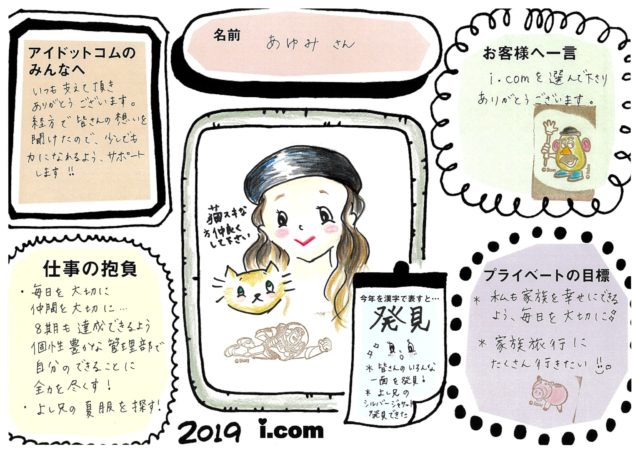 アイドットコムの
みんなへ
いつも支えて頂き
ありがとうございます。
経方で皆さんの想いを
聞けたので、少しでも
力になれるよう、サポート
します!!
名前
あゆみ さん
お客様へ一言
i.comを選んで下さり
ありがとうございます。
猫スキな
方仲良く
して下さい
仕事の抱負
・毎日を大切に
仲間を大切に…
8期も達成できるよう
個性豊かな管理部で
自分のできることに
全力を尽くす!
・よし兄の夏服を探す!
今年を漢字で表すと…
発見
*皆さんのいろんな
一面を発見!
*よし兄の
シルバージャケット
発見できた
プライベートの目標
* 私も家族を幸せにできる
よう、毎日を大切に
* 家族旅行に
たくさん行きたい!!
2019 i.com